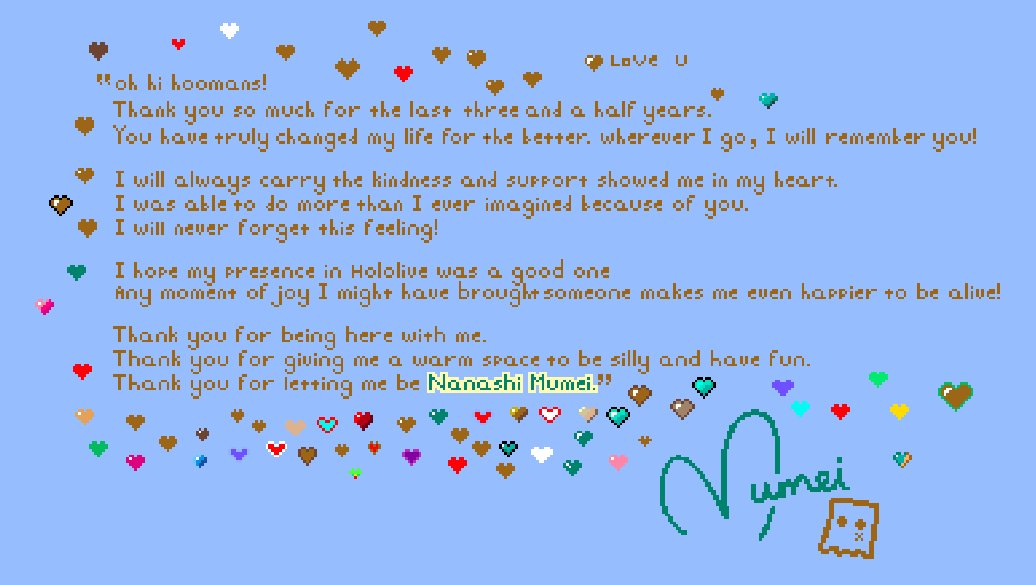 Love U
"oh hi hoomans!
Thank you so much for the last three and a half years.
You have truly changed my life for the better. wherever I go, I will remember you!
I will always carry the kindness and support showed me in my heart.
I was able to do more than I ever imagined because of you.
I will never forget this feeling!
I hope my presence in Hololive was a good one
Any moment of joy I might have brought someone makes me even happier to be alive!
Thank you for being here with me.
Thank you for giving me a warm space to be silly and have fun.
Thank you for letting me be Nanashi Mumei."
Mumei